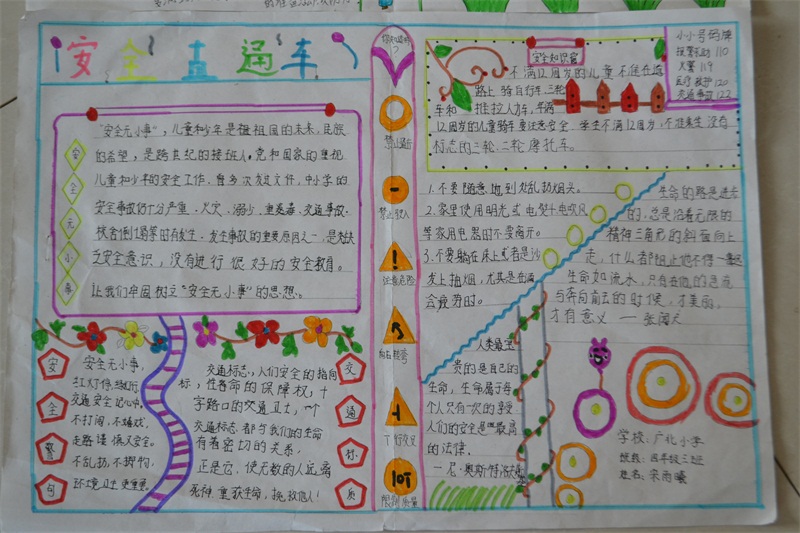 安全直通车
你知道吗
?
安全知识窗
不满12周岁的儿童不能在道
路上骑自行车、三轮
车和推拉人力车,年满
12周岁的儿童骑车要注意安全。学生不满12周岁,不准乘坐没有
标志的三轮、二轮摩托车。
小小号码牌
报警电话 110
火警 119
医疗救护 120
交通事故 122
安全无小事
"安全无小事",儿童和少年是祖国的未来,民族
的希望,是跨世纪的接班人。党和国家的重视
儿童和少年的安全工作,曾多次发过文件,中小学的
安全事故仍十分严重。火灾、溺水、重类毒、交通事故、
校舍倒塌等时有发生。发生事故的重要原因之一,是缺
乏安全意识,没有进行很好的安全教育。
让我们牢固树立"安全无小事"的思想。
禁止通行
禁止驶入
注意危险
向右转弯
丁形交叉
限制质量
10T
1.不要随意地到处乱扔烟头。
2.家里使用明光或电熨斗电吹风
等家用电器时不要离开。
3.不要躺在床上或者是沙
发上抽烟,尤其是在
会疲劳时。
生命的路是进步
的,总是沿着无限的
精神三角形的斜面向上
走,什么都阻止他不得
生命如流水,只有在他的急流
与奔向前去的时候,才美丽,
才有意义 — 张闻天
安全警句
安全无小事,
红灯停,绿灯行。
交通安全记心中,
不打闹,不嬉戏,
走路谨慎人安全。
不乱扔,不掷物,
环境卫生更重要。
交通标志,人们安全的指向
标,性命的保障权;十
字路口的交通卫士,一个
交通标志都与我们的生命
有着密切的关系,
正是它,使无数的人远离
死神,重获生命,挽救他人!
交通标质
人类最宝
贵的是自己的
生命,生命属于每
个人只有一次的享受
人们的安全是最高
的法律。
—尼·奥斯特洛夫
学校:广化小学
班级:四年级三班
姓名:宋雨曦